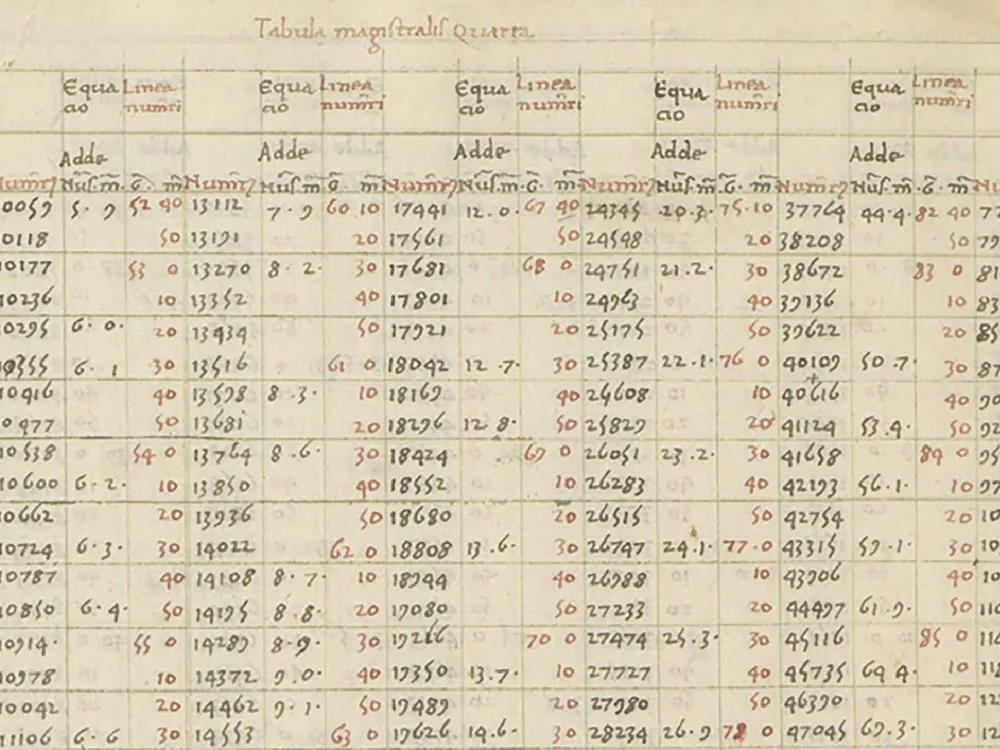 Tabula magistralis Quarta
Equa Linea Equa Linea Equa Linea Equa Linea Equa Linea
cio numeri cio numeri cio numeri cio numeri cio numeri
Adde Adde Adde Adde Adde
Numeri Nus. m. G. m Numeri Nus. m G. m Numeri Nus. m. G. m Numeri Nus. m. G. m Numeri Nus. m. G. m
0059 5·9 52 40 13112 7·9 60 10 17441 12·0· 67 40 24345 20·3· 75·10 37764 44·4· 82 40 77
0118 50 13191 20 17561 50 24548 20 38208 50 79
0177 53 0 13270 8·2· 30 17681 68 0 24751 21·2· 30 38672 83 0 81
0236 10 13352 40 17801 10 24963 40 39136 10 83
0295 6·0· 20 13434 50 17921 20 25175 50 39622 20 85
0355 6·1 30 13516 61 0 18042 12·7· 30 25387 22·1· 76 0 40109 50·7· 30 87
0416 40 13598 8·3· 10 18169 40 25608 10 40616 40 90
0477 50 13681 20 18296 12 8· 50 25829 20 41124 53·4· 50 92
0538 54 0 13764 8·6· 30 18424 69 0 26051 23·2· 30 41658 84 0 95
0600 6·2· 10 13850 40 18552 10 26283 40 42193 56·1· 10 97
0662 20 13936 50 18680 20 26515 50 42754 20 10
0724 6·3· 30 14022 62 0 18808 13·6· 30 26747 24·1· 77·0 43315 59·1· 30 10
0787 40 14108 8·7· 10 18944 40 26988 10 43906 40 10
0850 6·4· 50 14195 8·8· 20 19080 50 27233 20 44497 61·9· 50 110
0914· 55 0 14289 8·9· 30 19216 70 0 27474 25·3· 30 45116 85 0 114
0978 10 14372 9·0· 40 19350 13·7· 10 27727 40 45735 64 4· 10 11
10042 20 14462 9·1· 50 19489 20 27980 50 46390 20 12
11106 6·6 30 14553 63 0 19626 14·6· 30 28234 26·9 78 0 47045 69·3· 30 12